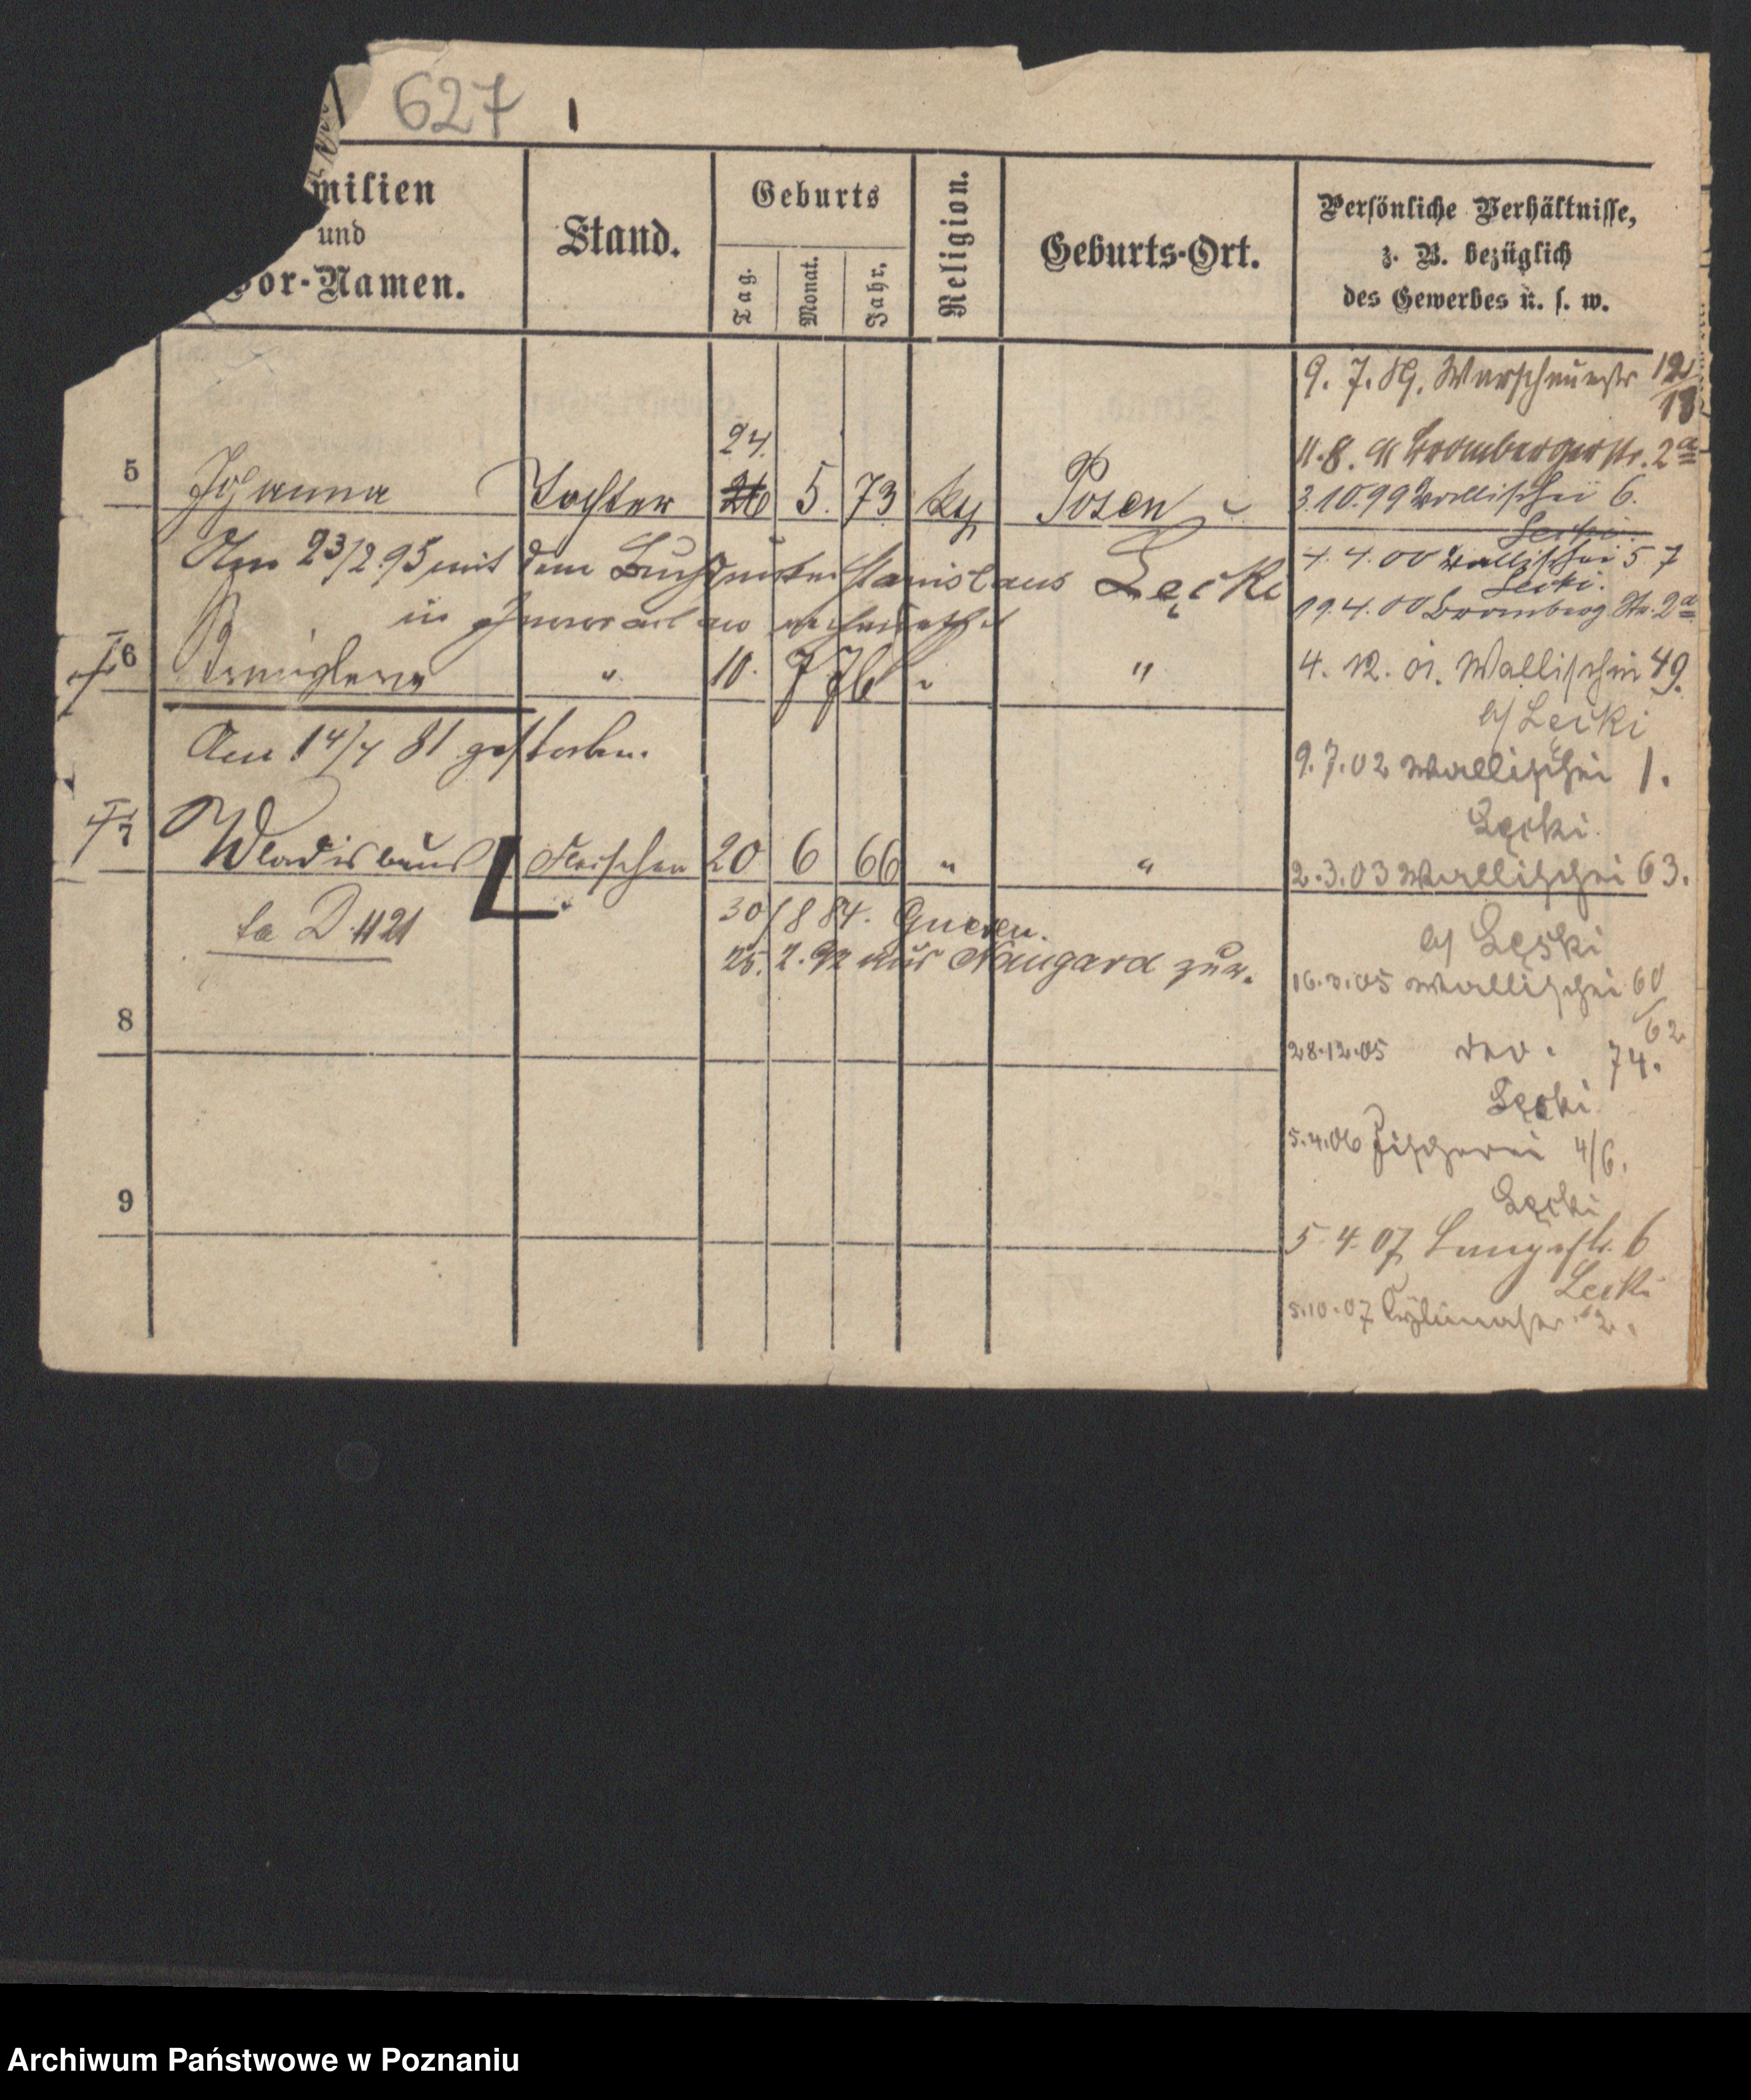 627
milien
und
or-Namen.
Stand.
Geburts
Tag.
Monat.
Jahr.
Religion.
Geburts-Ort.
Persönliche Verhältnisse,
z. B. bezüglich
des Gewerbes u. s. w.
9. 7. 89. Warschauerstr 12/13
11. 8. 91 Brombergerstr. 2a
3.10.99 Wallischei 6.
Lecki.
4. 4. 00 Wallischei 57
Lecki.
19.4.00 Bromberg Str. 2a
4. 12. 01. Wallischei 49.
b/ Lęcki
9.7.02 Wallischei 1.
Lęcki.
2.3.03 Wallischei 63.
b/ Lęcki
16.3.05 Wallischei 60/62
28.12.05 74.
Lęcki
5.4.06 Fischerei 4/6.
Lęcki
5. 4. 07 Langestr. 6
Lecki
5.10.07 2.
24.
5 Johanna Tochter 26 5. 73 kth Posen
Am 23/2 95 mit dem Stanislaus Lęcki
in verheirathet
6 " 10. 7 76 " "
Am 14/7 81 gestorben.
7 Wladislaus Fleischer 20 6 66 " "
30/8 84. Gnesen.
fa D. 1121
25. 2. 92 aus Naugard zur.
8
9
Archiwum Państwowe w Poznaniu